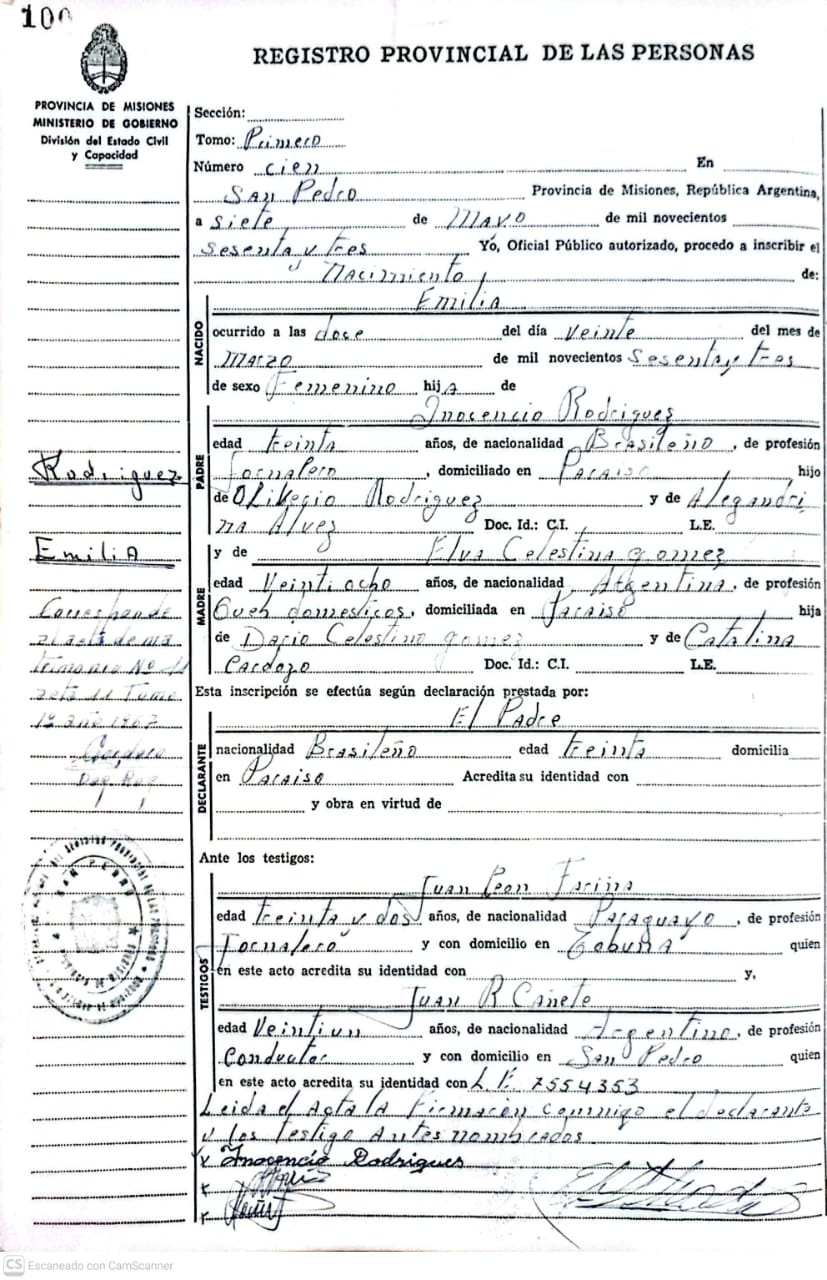 100
REGISTRO PROVINCIAL DE LAS PERSONAS
PROVINCIA DE MISIONES
MINISTERIO DE GOBIERNO
División del Estado Civil
y Capacidad
Sección:
Tomo: Primero
Número cien En
San Pedro Provincia de Misiones, República Argentina,
a siete de Mayo de mil novecientos
sesenta y tres Yó, Oficial Público autorizado, procedo a inscribir el
Nacimiento de:
NACIDO
Emilia
ocurrido a las doce del día veinte del mes de
Marzo de mil novecientos sesenta y tres
de sexo Femenino hijA de
PADRE
Inocencio Rodrigues
edad treinta años, de nacionalidad Brasileño, de profesión
Jornalero, domiciliado en Paraiso hijo
de Oliverio Rodriguez y de Alegandri
na Alvez Doc. Id.: C.I. L.E.
MADRE
y de Elva Celestina gomez
edad Veintiocho años, de nacionalidad Argentina, de profesión
domesticos, domiciliada en Paraiso hija
de Dario Celestino gomez y de Catalina
Cardozo Doc. Id.: C.I. L.E.
Rodriguez
Emilia
Corresponde
al acta de ma
trimonio Nº 11
acta 11 Tomo
1º año
Esta inscripción se efectúa según declaración prestada por:
DECLARANTE
El Padre
nacionalidad Brasileño edad treinta domicilia
en Paraiso Acredita su identidad con
y obra en virtud de
Ante los testigos:
TESTIGOS
Juan Leon Fariña
edad treinta y dos años, de nacionalidad Paraguayo, de profesión
Jornalero y con domicilio en Tobuna quien
en este acto acredita su identidad con y,
Juan R Cañete
edad Veintiun años, de nacionalidad Argentino, de profesión
Conductor y con domicilio en San Pedro quien
en este acto acredita su identidad con L.E. 7554353
Leida el Acta la Firmaron conmigo el declarante
y los testigo Antes nombrados
Inocencio Rodrigues
CS Escaneado con CamScanner